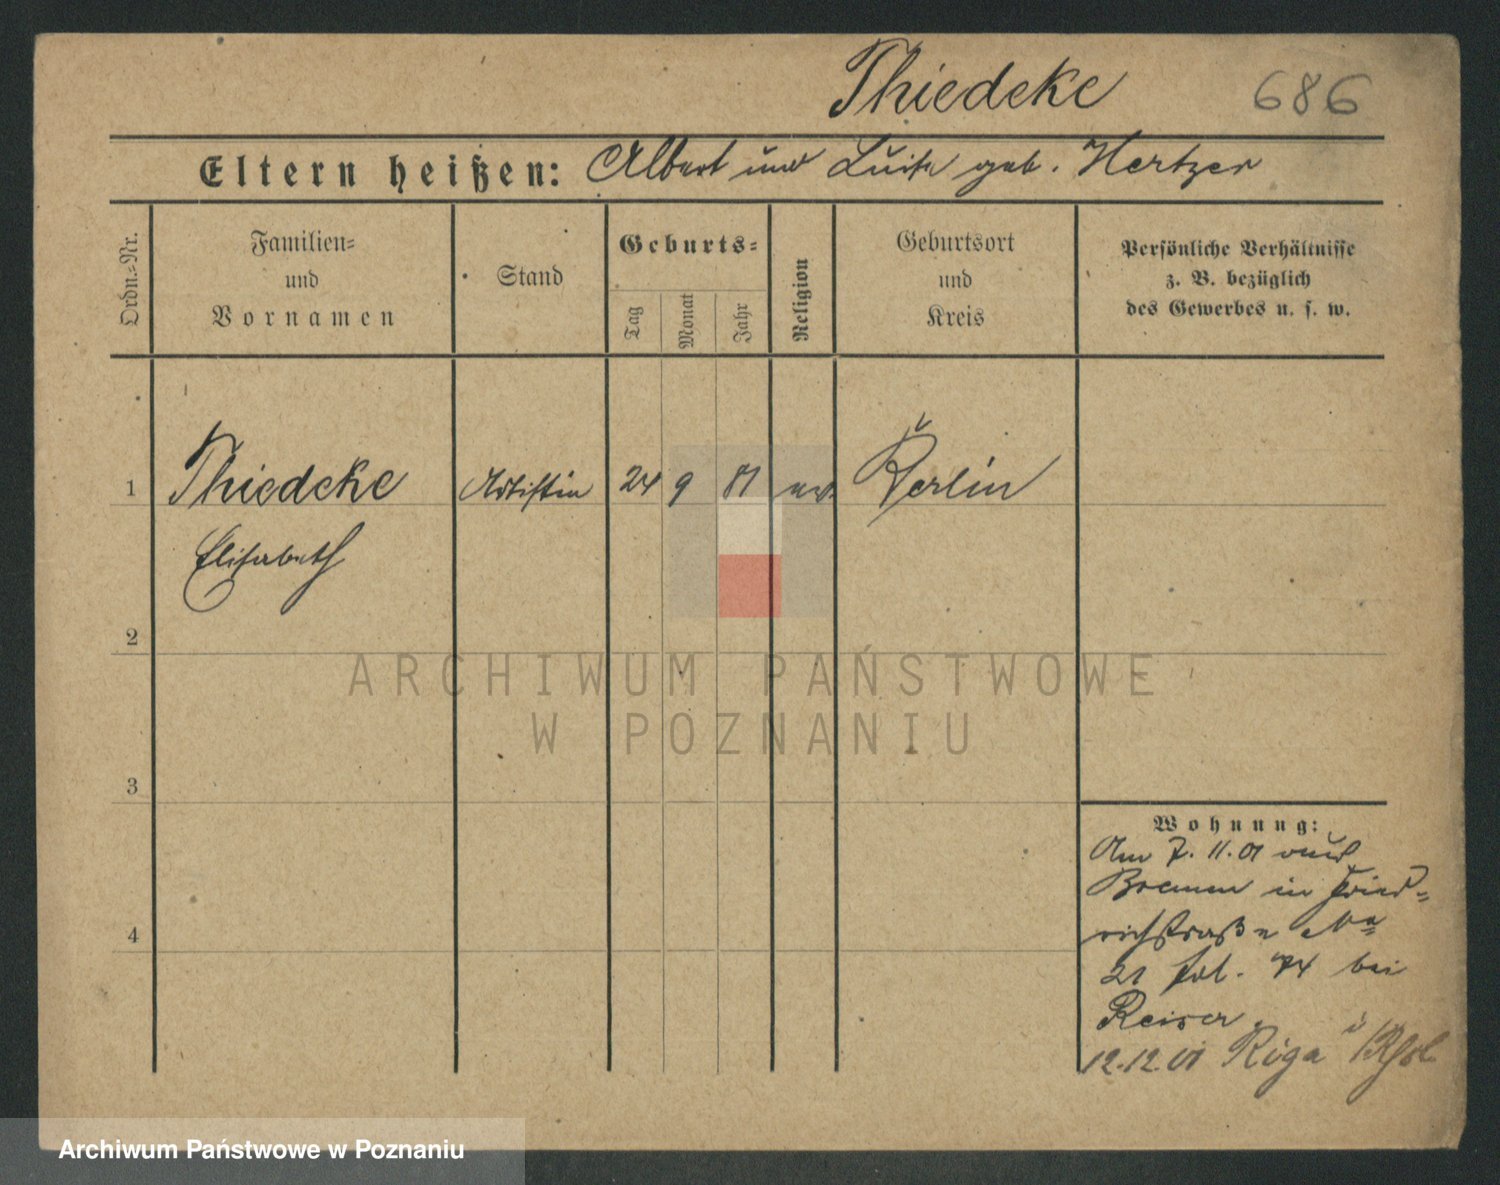 Thiedeke 686
Eltern heißen: Albert und Luise geb. Hertzer
Ordn.-Nr.
Familien-
und
Vornamen
Stand
Geburts-
Tag
Monat
Jahr
Religion
Geburtsort
und
Kreis
Persönliche Verhältnisse
z. B. bezüglich
des Gewerbes u. s. w.
1 Thiedeke Artistin 24 9 81 ev. Berlin
Elisabeth
2
3
4
Wohnung:
Am 7. 11. 01 aus
Bremen in Fried-
richstraße No
21 bei
Reiser.
12.12.01 Riga
ARCHIWUM PAŃSTWOWE
W POZNANIU
Archiwum Państwowe w Poznaniu